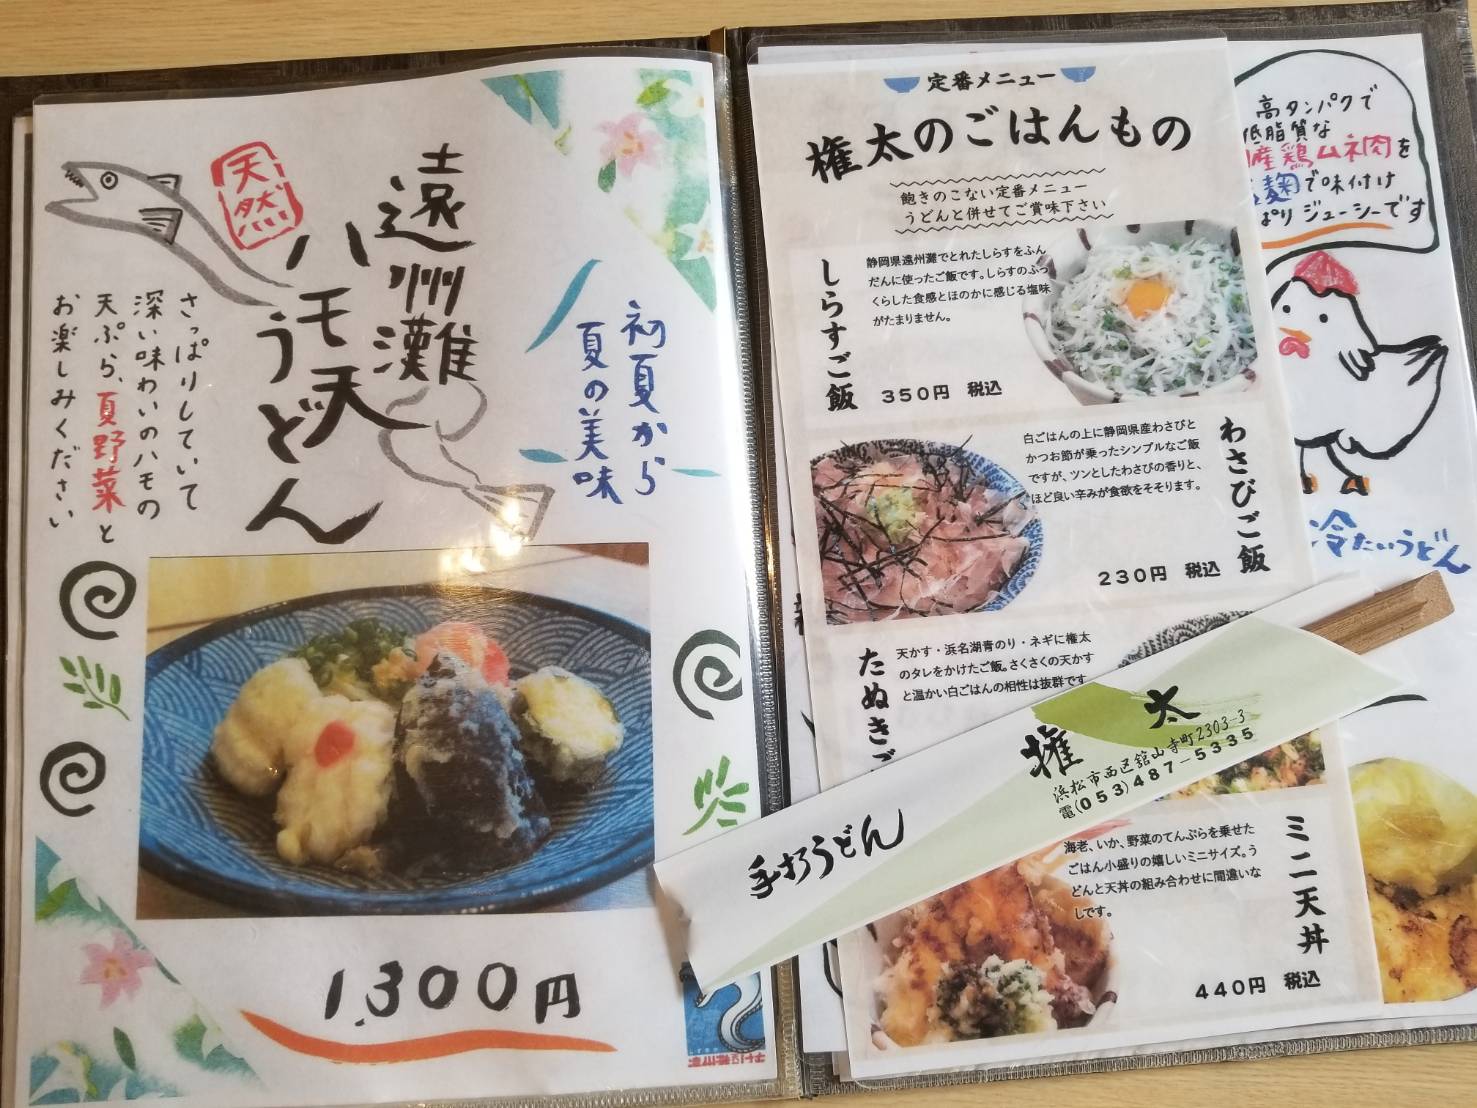 遠州灘
天然
ハモ天
うどん
初夏から
夏の美味
さっぱりしていて
深い味わいのハモの
天ぷら、夏野菜と
お楽しみください
1,300円
定番メニュー
権太のごはんもの
飽きのこない定番メニュー
うどんと併せてご賞味下さい
しらすご飯
静岡県遠州灘でとれたしらすをふん
だんに使ったご飯です。しらすのふっ
くらした食感とほのかに感じる塩味
がたまりません。
350円 税込
わさびご飯
白ごはんの上に静岡県産わさびと
かつお節が乗ったシンプルなご飯
ですが、ツンとしたわさびの香りと、
ほど良い辛みが食欲をそそります。
230円 税込
たぬきご
天かす・浜名湖青のり・ネギに権太
のタレをかけたご飯。さくさくの天かす
と温かい白ごはんの相性は抜群です
ミニ天丼
海老、いか、野菜のてんぷらを乗せた
ごはん小盛りの嬉しいミニサイズ。う
どんと天丼の組み合わせに間違いな
しです。
440円 税込
高タンパクで
低脂質な
産鶏ムネ肉を
麹で味付け
ぱりジューシーです
冷たいうどん
手打うどん
権太
浜松市西区舘山寺町2303-3
電(053)487-5335